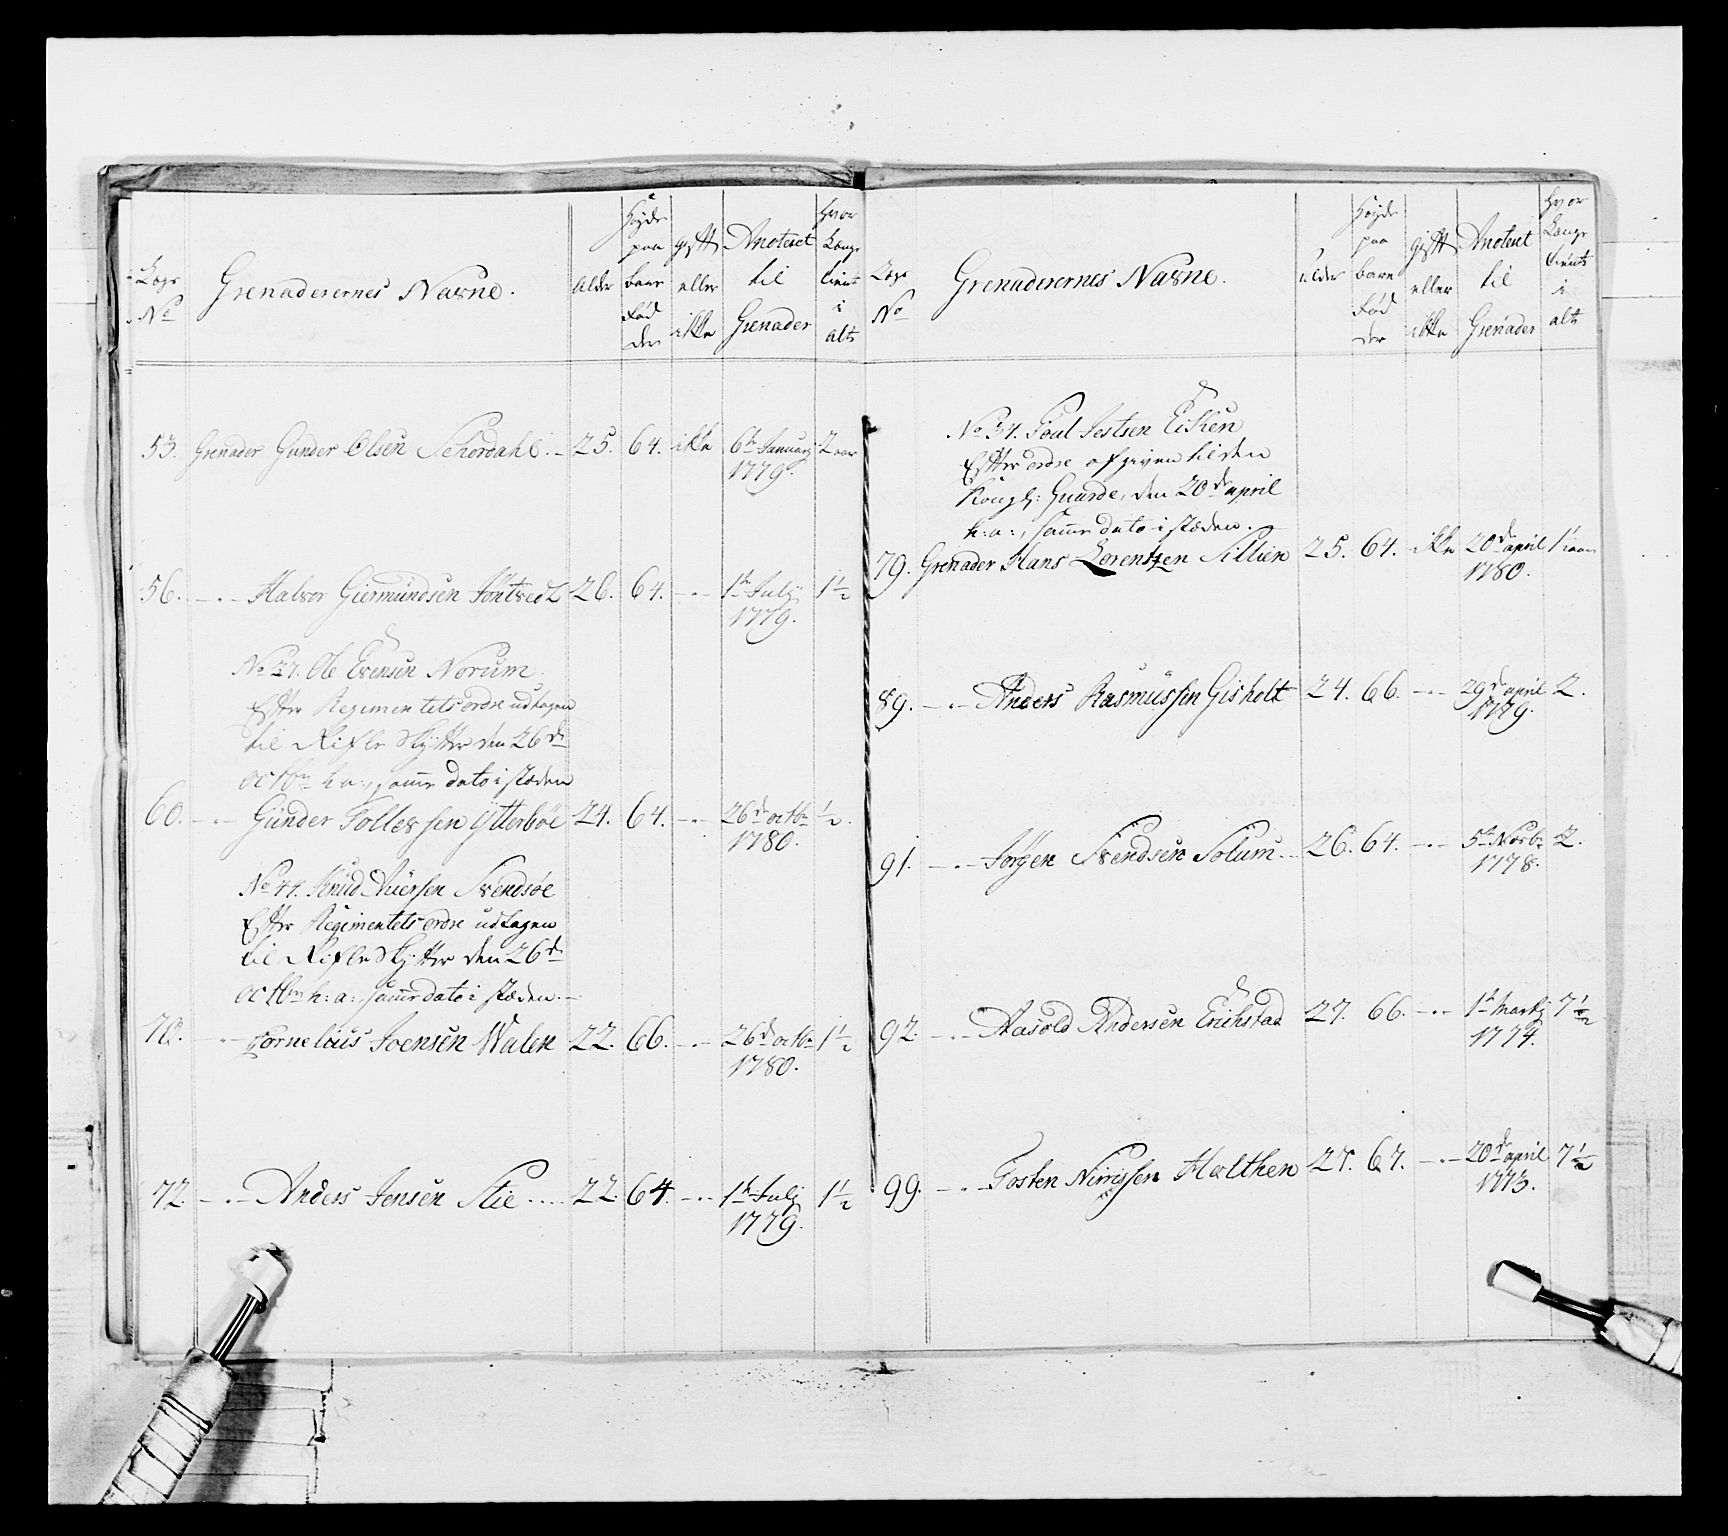 Lægs No
Grenaderernes Navne.
Alder
Høyde paa bare Fød der
gift eller ikke
Anoteret til Grenader
hvor Længe tient i alt
53. Grenader Gunder Olsen Schordahl. 25. 64. ikke 6te Januarj 2 aar
1779.
56. —.— Halvor Giermundsen Tøntvedt 26. 64. —.— 1te Julj 1½
1779.
No 37. Ole Evensen Norum.
Efter Regimentets ordre udtagen
til Rifle Skytter den 26de
octbr h: a:, samme dato i stæden
60. —.— Gunder Tollefsen Ytterbøe 24. 64. —.— 26de octbr ½.
1780.
No 44. Knud Aversen Svendsøe
Efter Regimentets ordre udtagen
til Rifle Skytter den 26de
octbr h: a: samme dato i stæden.
70. —.— Cornelius Joensen Walen 22. 66. —.— 26de octbr 1½
1780.
72. —.— Anders Jensen Stie 22. 64. —.— 1te Julj 1½
1779.
Lægs No
Grenaderernes Navne.
Alder
Høyde paa bare Fød der
gift eller ikke
Anoteret til Grenader
hvor Længe tient i alt
No 34. Poul Jestsen Eiken
Efter ordre afgiven til den
Kongl: Guarde, den 20de april
h: a:, samme dato i stæden.
79. Grenader Hans Lorentzen Sillien 25. 64. ikke 20de april 1 aar
1780.
89. —.— Anders Rasmussen Gisholt 24. 66. —.— 29de april 2.
1779.
91. —.— Jørgen Svendsen Solum 26. 64. —.— 5te Novbr 2.
1778.
92. —.— Aasold Andersen Erichstad 27. 66. —.— 1te Martj 7½
1774.
99. —.— Tosten Nirissen Holthen 27. 67. —.— 20de april 7½
1773.